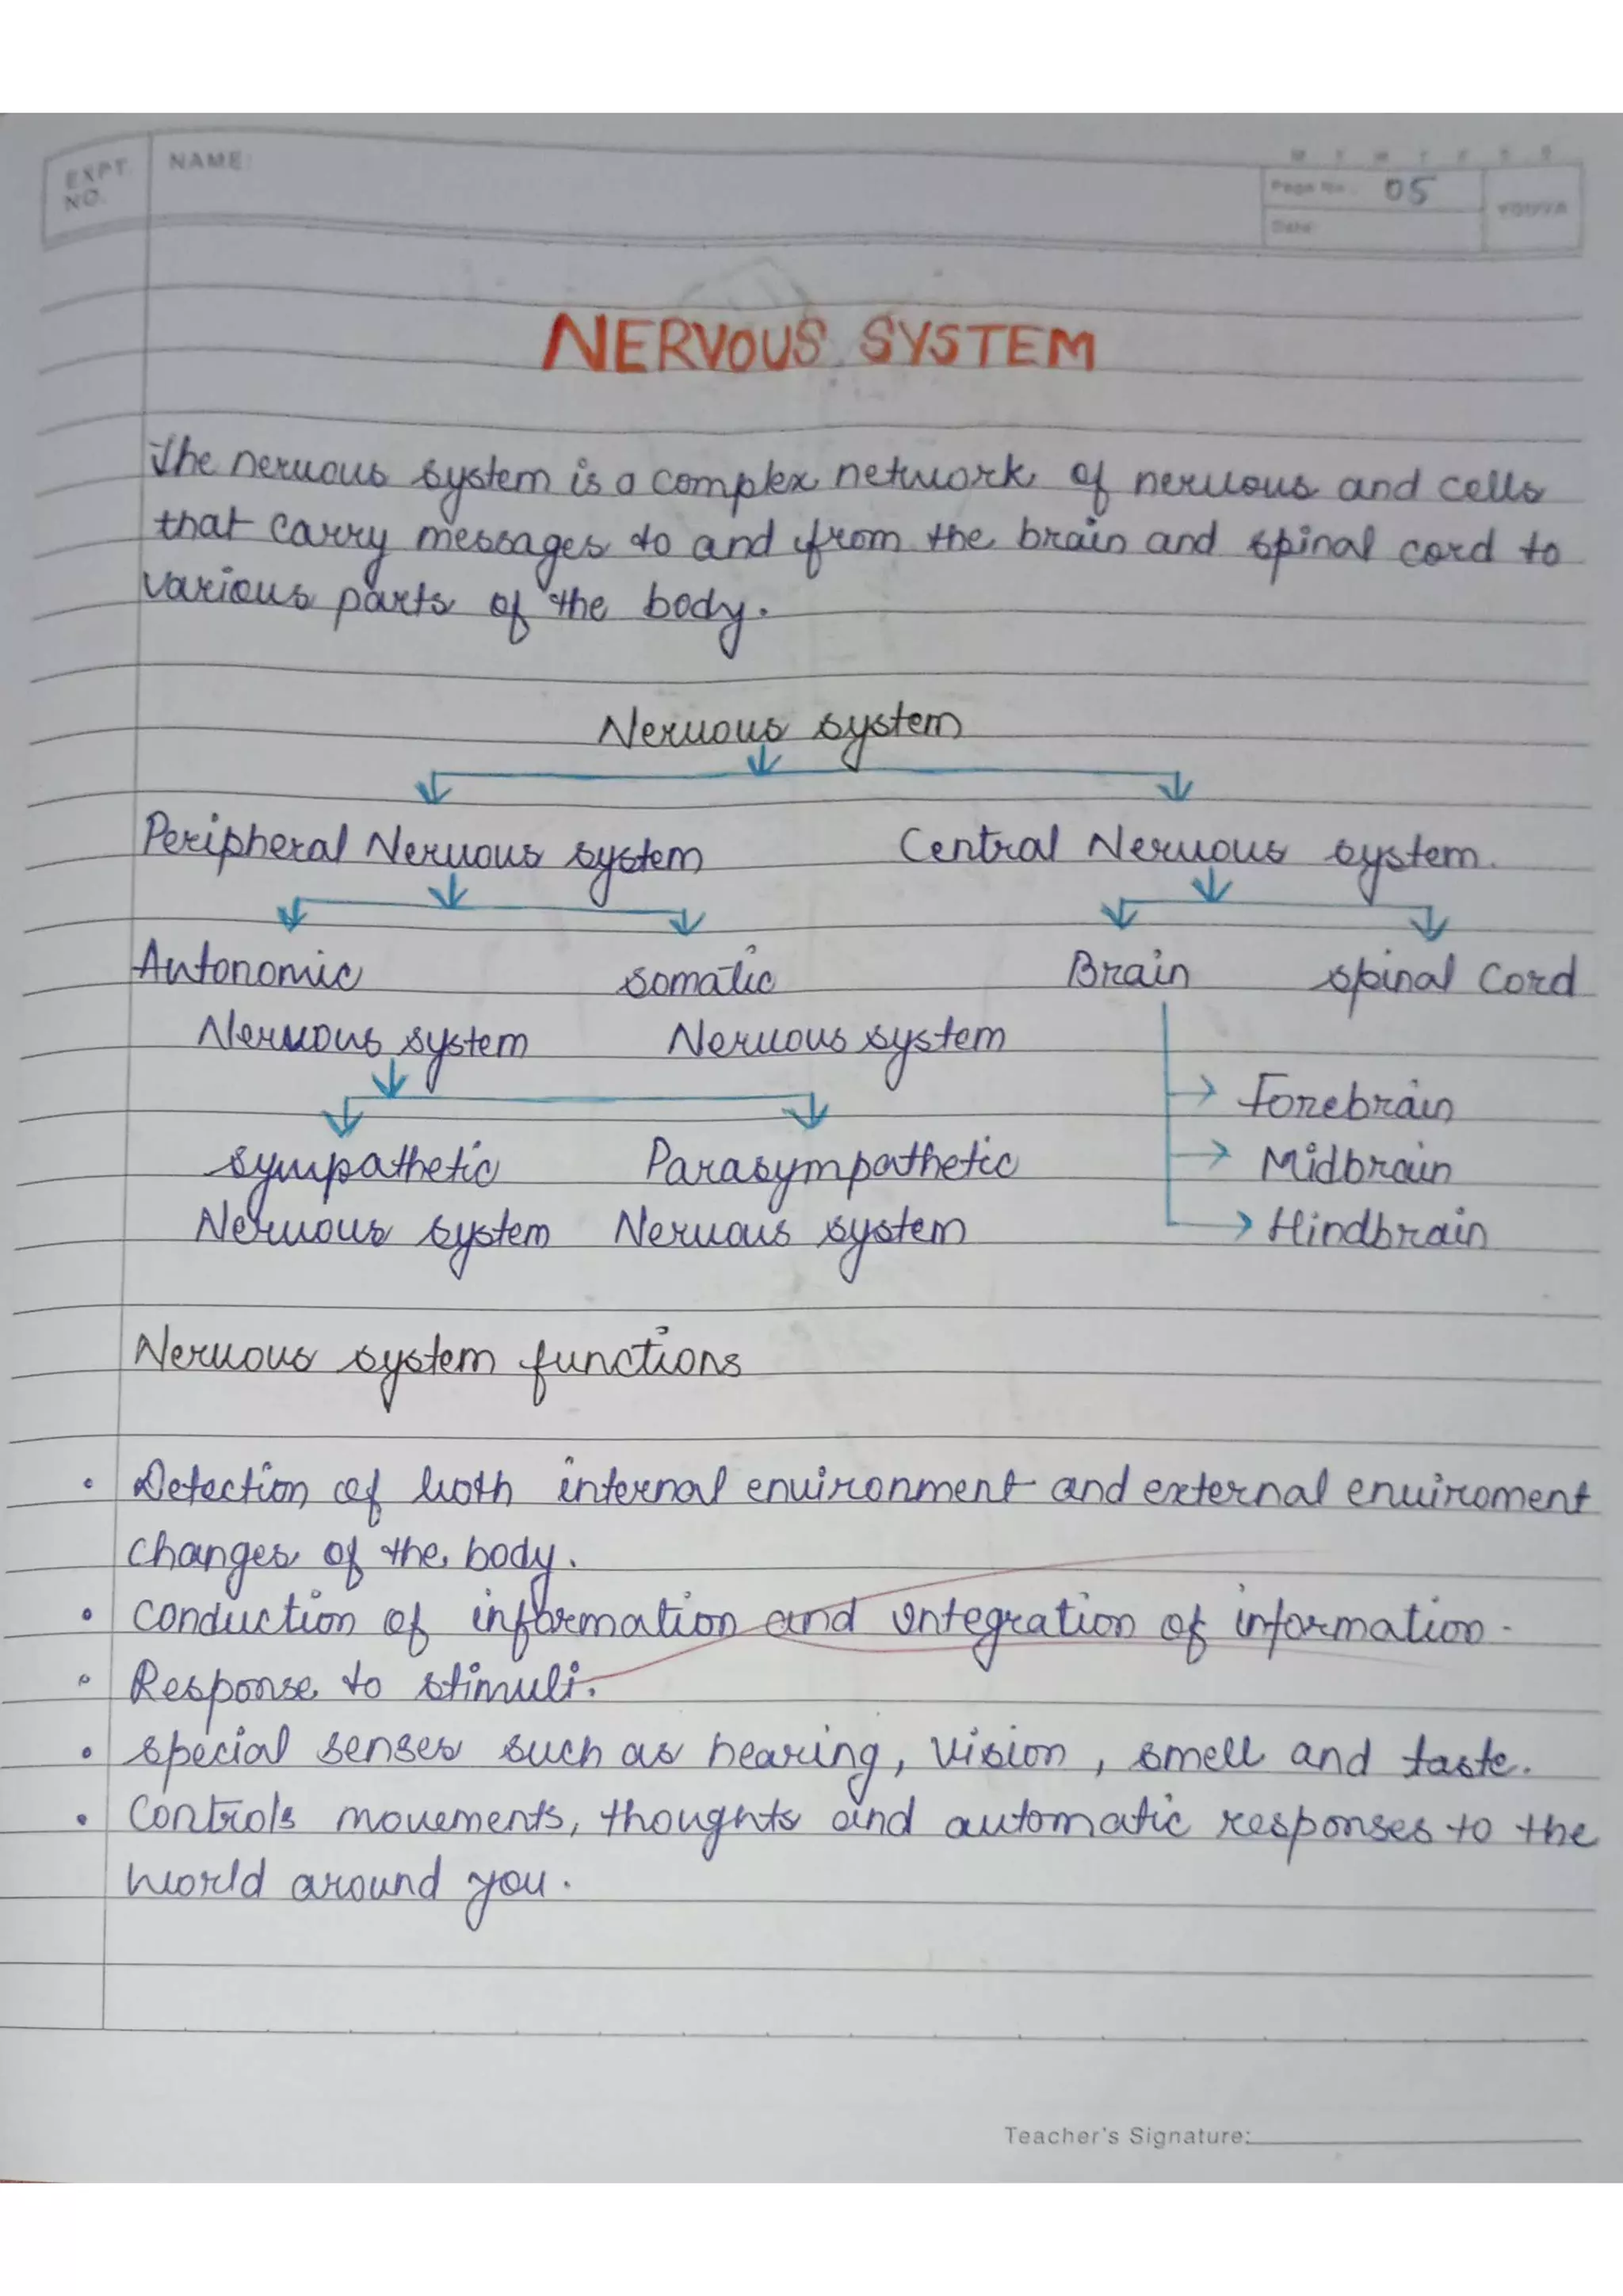 EXPT. NO.
NAME:
M T W T F S S
Page No. 05
Date:
YOUVA
NERVOUS SYSTEM
The nervous system is a complex network of nervous and cells
that carry messages to and from the brain and spinal cord to
various parts of the body.
Nervous system
Peripheral Nervous system Central Nervous system.
Autonomic somatic Brain spinal Cord
Nervous system Nervous system
Forebrain
sympathetic Parasympathetic Midbrain
Nervous system Nervous system Hindbrain
Nervous system functions
• Detection of both internal environment and external enviroment
changes of the body.
• Conduction of information and integration of information.
• Response to stimuli.
• special senses such as hearing, vision, smell and taste.
• Controls movements, thoughts and automatic responses to the
world around you.
Teacher's Signature: